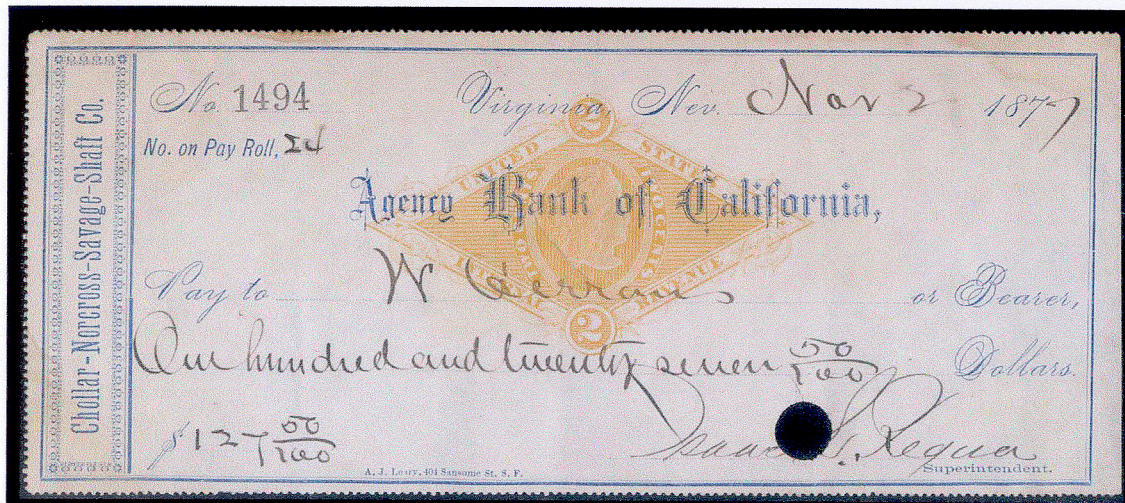 Chollar-Norcross-Savage-Shaft Co.
No. 1494
Virginia, Nev. Nov 2 1877
No. on Pay Roll, 24
UNITED STATES
INTERNAL REVENUE
2
Agency Bank of California,
Pay to W or Bearer,
One hundred and twenty seven 50/100 Dollars.
$127 50/100
Isaac L. Requa
Superintendent.
A. J. Leary, 401 Sansome St. S. F.
2